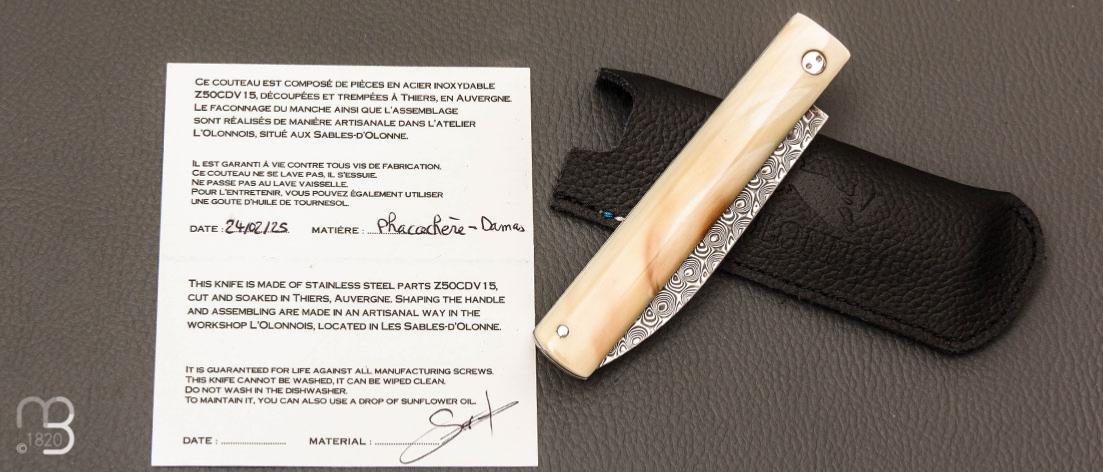 CE COUTEAU EST COMPOSÉ DE PIÈCES EN ACIER INOXYDABLE
Z50CDV15, DÉCOUPÉES ET TREMPÉES À THIERS, EN AUVERGNE.
LE FACONNAGE DU MANCHE AINSI QUE L'ASSEMBLAGE
SONT RÉALISÉS DE MANIÈRE ARTISANALE DANS L'ATELIER
L'OLONNOIS, SITUÉ AUX SABLES-D'OLONNE.
IL EST GARANTI À VIE CONTRE TOUS VIS DE FABRICATION.
CE COUTEAU NE SE LAVE PAS, IL S'ESSUIE.
NE PASSE PAS AU LAVE VAISSELLE.
POUR L'ENTRETENIR, VOUS POUVEZ ÉGALEMENT UTILISER
UNE GOUTE D'HUILE DE TOURNESOL.
DATE : 24/02/25 MATIÈRE : phacochère - Damas
THIS KNIFE IS MADE OF STAINLESS STEEL PARTS Z50CDV15,
CUT AND SOAKED IN THIERS, AUVERGNE. SHAPING THE HANDLE
AND ASSEMBLING ARE MADE IN AN ARTISANAL WAY IN THE
WORKSHOP L'OLONNOIS, LOCATED IN LES SABLES-D'OLONNE.
IT IS GUARANTEED FOR LIFE AGAINST ALL MANUFACTURING SCREWS.
THIS KNIFE CANNOT BE WASHED, IT CAN BE WIPED CLEAN.
DO NOT WASH IN THE DISHWASHER.
TO MAINTAIN IT, YOU CAN ALSO USE A DROP OF SUNFLOWER OIL.
DATE : ..................... MATERIAL : .....................
MB
©1820